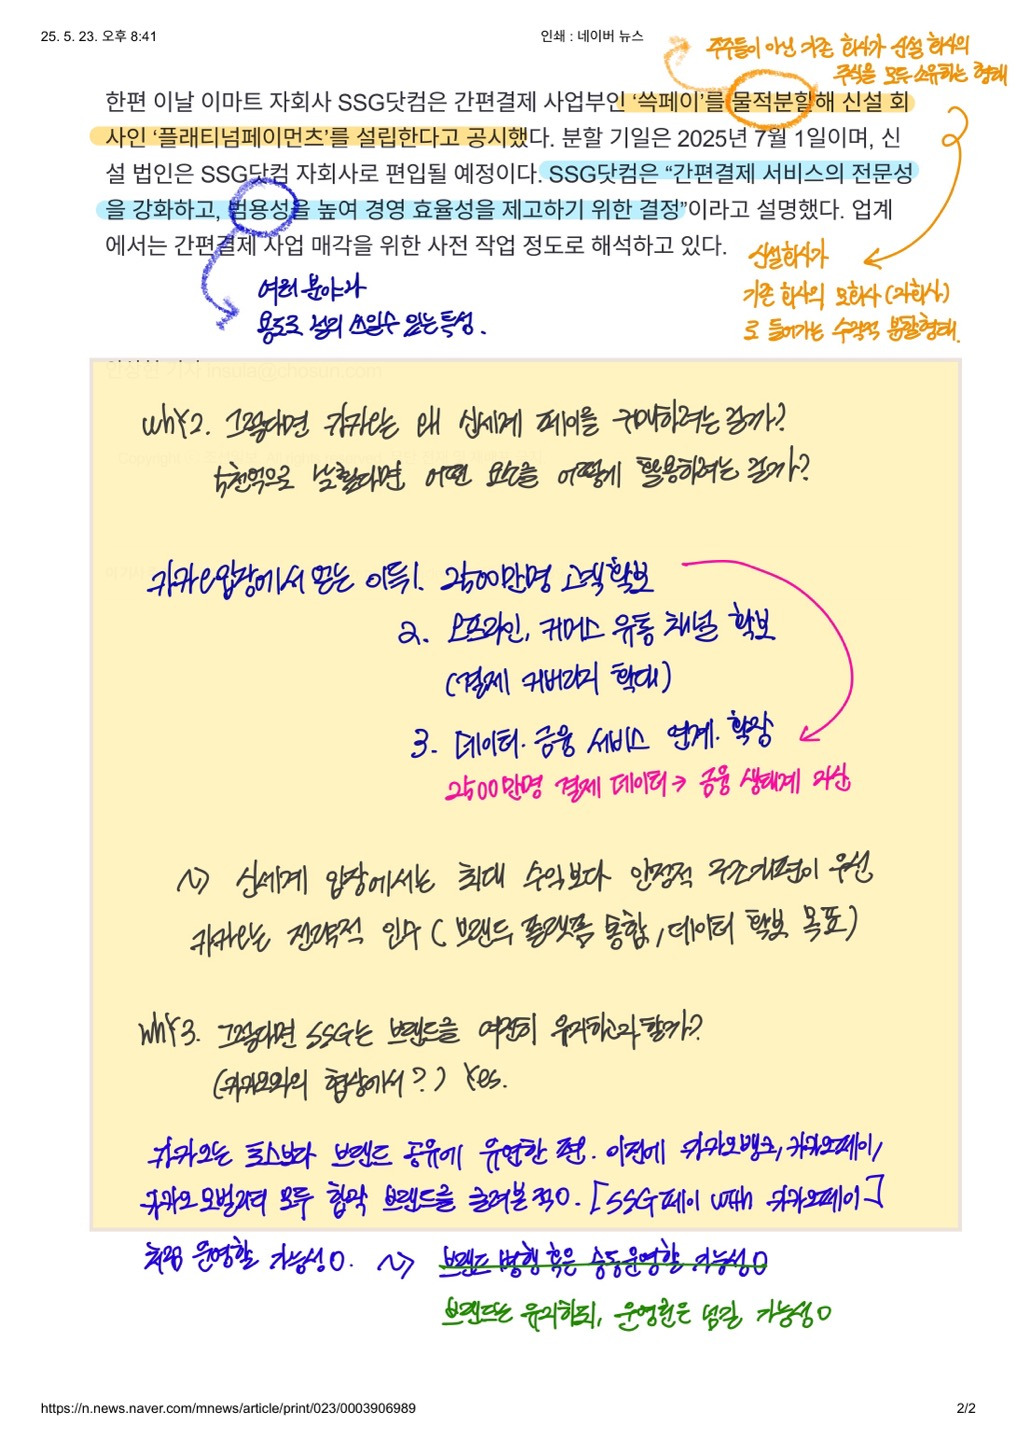 25. 5. 23. 오후 8:41
인쇄 : 네이버 뉴스
주주들이 아닌 기존 회사가 신설 회사의
주식을 모두 소유하는 형태
한편 이날 이마트 자회사 SSG닷컴은 간편결제 사업부인 ‘쓱페이’를 물적분할해 신설 회
사인 ‘플래티넘페이먼츠’를 설립한다고 공시했다. 분할 기일은 2025년 7월 1일이며, 신
설 법인은 SSG닷컴 자회사로 편입될 예정이다. SSG닷컴은 “간편결제 서비스의 전문성
을 강화하고, 범용성을 높여 경영 효율성을 제고하기 위한 결정”이라고 설명했다. 업계
에서는 간편결제 사업 매각을 위한 사전 작업 정도로 해석하고 있다.
신설회사가
기존 회사의 모회사(자회사)
로 들어가는 수직적 분할형태.
여러 분야나
용도로 널리 쓰일수 있는 특성.
insula@chosun.com
why2. 그렇다면 카카오는 왜 신세계 페이를 구매하려는 걸까?
5천억으로 보았다면 어떤 요소를 어떻게 활용하려는 걸까?
카카오입장에서 얻는 이득 1. 2500만명 고객확보
2. 오프라인, 커머스 유통 채널 확보
(결제 커버리지 확대)
3. 데이터·금융 서비스 연계·확장
2500만명 결제 데이터 → 금융 생태계 자산
~> 신세계 입장에서는 최대 수익보다 안정적 구조개편이 우선
카카오는 전략적 인수 ( 브랜드 플랫폼 통합, 데이터 확보 목표)
why3. 그렇다면 SSG는 브랜드를 여전히 유지하고자 할까?
(카카오와의 협상에서?) Yes.
카카오는 토스보다 브랜드 공유에 유연한 편. 이전에 카카오뱅크, 카카오페이,
카카오 모빌리티 모두 협약 브랜드를 늘려본 적 O. [SSG페이 with 카카오페이]
처럼 운영할 가능성 O. ~> 브랜드 병행 혹은 공동운영할 가능성 O
브랜드는 유지하되, 운영권은 넘길 가능성 O
https://n.news.naver.com/mnews/article/print/023/0003906989
2/2